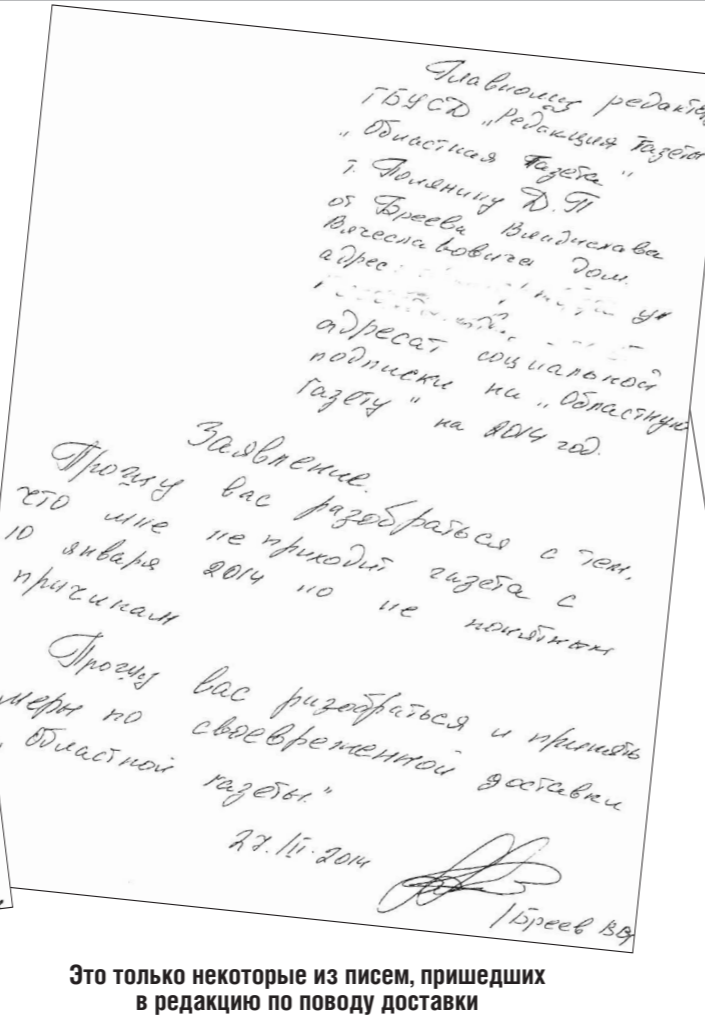 Главному редактору
ГБУСО „Редакция газеты
„Областная Газета"
т. Полянину Д.П
от Бреева Владислава
Вячеславовича дом.
адрес: ул
адресат социальной
подписки на „Областную
газету" на 2014 год.
Заявление.
Прошу вас разобраться с тем,
что мне не приходит газета с
10 января 2014 по не понятным
причинам
Прошу вас разобраться и принять
меры по своевременной доставки
„Областной газеты."
27.III.2014
/Бреев ВВ/
Это только некоторые из писем, пришедших
в редакцию по поводу доставки